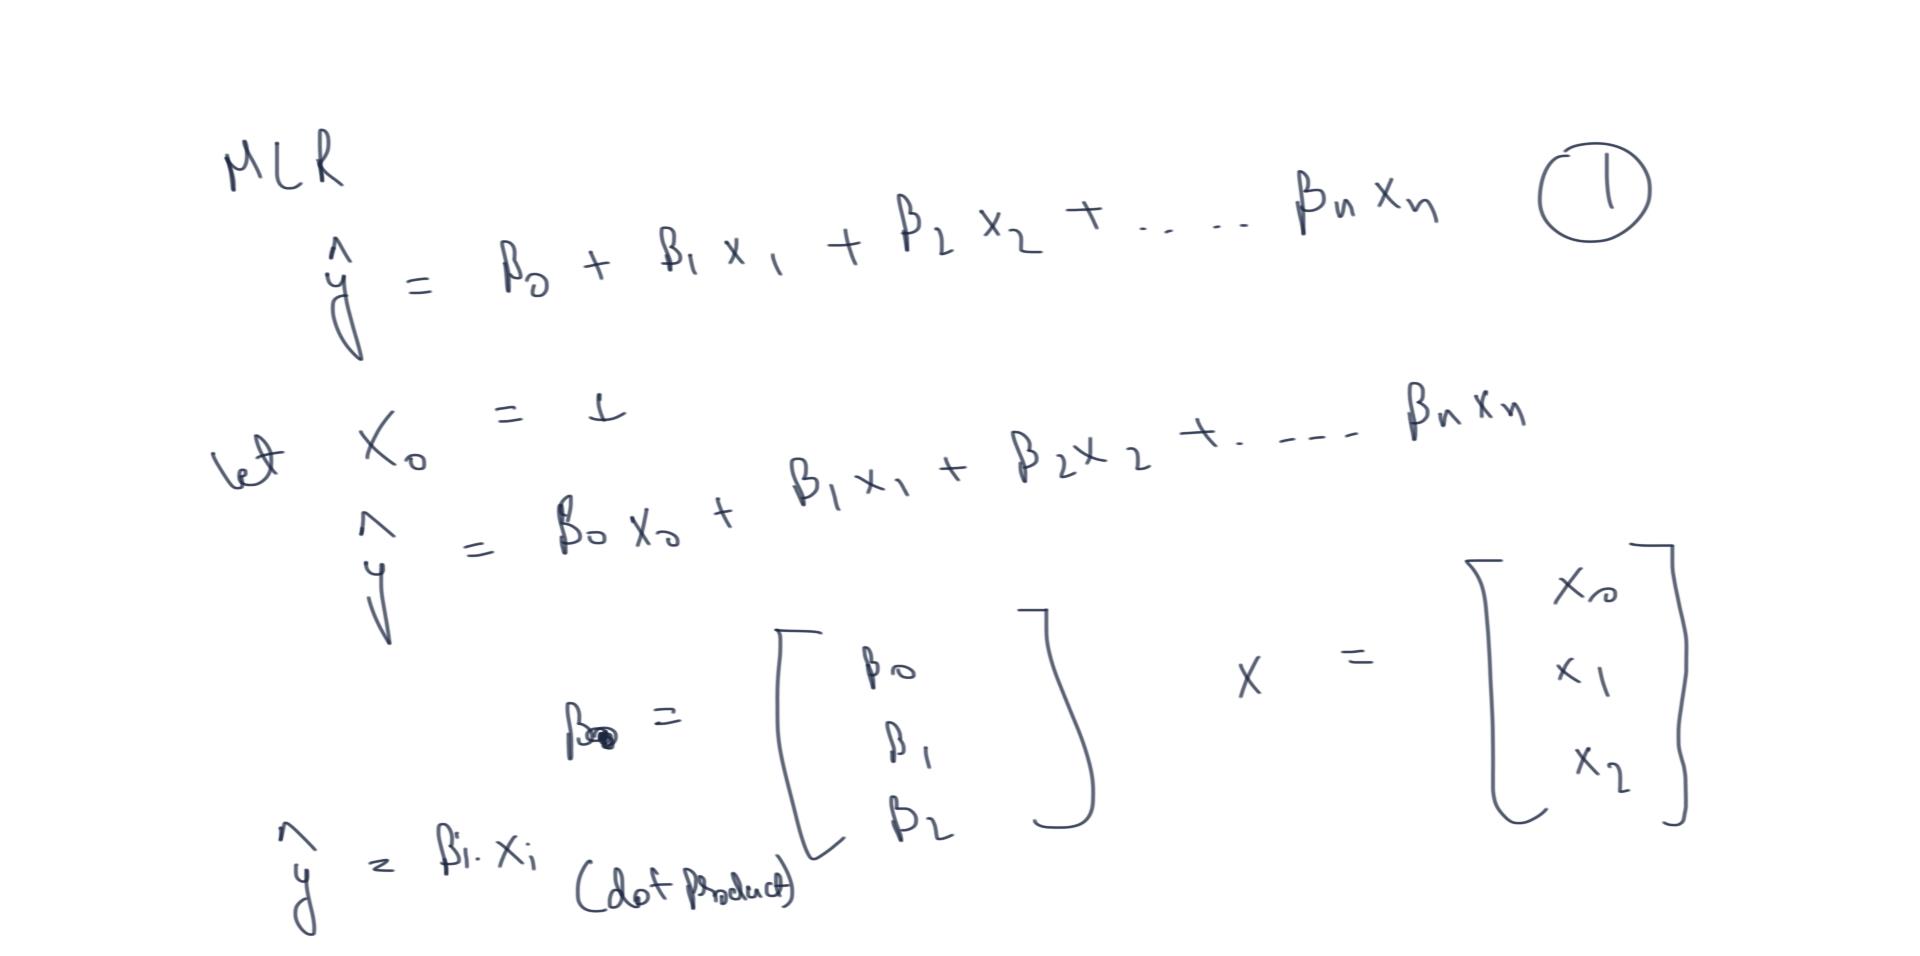 MLR
ŷ = β₀ + β₁ x₁ + β₂ x₂ + ..... βₙ xₙ ①
let X₀ = 1
ŷ = β₀ X₀ + β₁ x₁ + β₂ x₂ + . ---- βₙ xₙ
β = [ β₀ β₁ β₂ ] X = [ x₀ x₁ x₂ ]
ŷ = βᵢ . xᵢ (dot product)